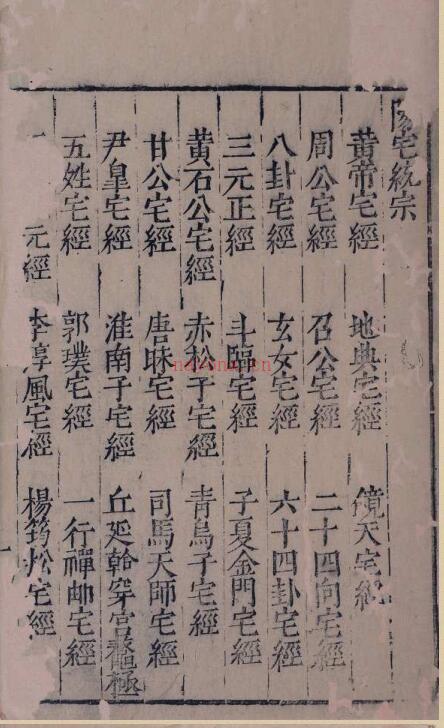 陽宅統宗
黃帝宅經 地典宅經 鏡天宅經
周公宅經 召公宅經 二十四向宅經
八卦宅經 玄女宅經 六十四卦宅經
三元正經 斗臨宅經 子夏金門宅經
黃石公宅經 赤松子宅經 青烏子宅經
甘公宅經 唐昧宅經 司馬天師宅經
尹皇宅經 淮南子宅經 丘延翰穿宮
五姓宅經 郭璞宅經 一行禪師宅經
元經 李淳風宅經 楊筠松宅經